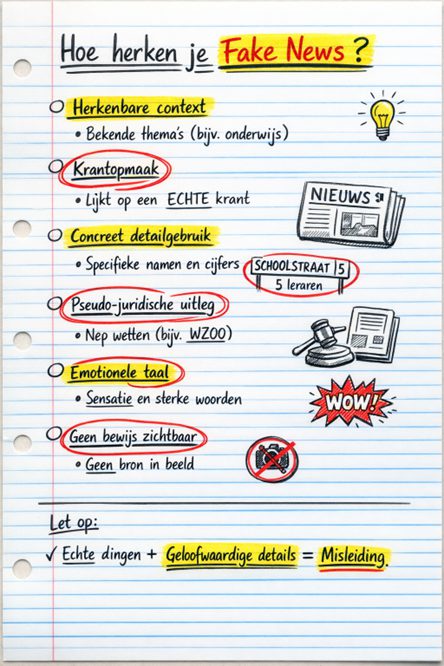 Hoe herken je Fake News ?
Herkenbare context
• Bekende thema's (bijv. onderwijs)
Krantopmaak
• Lijkt op een ECHTE krant
NIEUWS
Concreet detailgebruik
• Specifieke namen en cijfers
SCHOOLSTRAAT 5
5 leraren
Pseudo-juridische uitleg
• Nep wetten (bijv. WZOO)
Emotionele taal
• Sensatie en sterke woorden
WOW!
Geen bewijs zichtbaar
• Geen bron in beeld
Let op:
✓ Echte dingen + Geloofwaardige details = Misleiding.